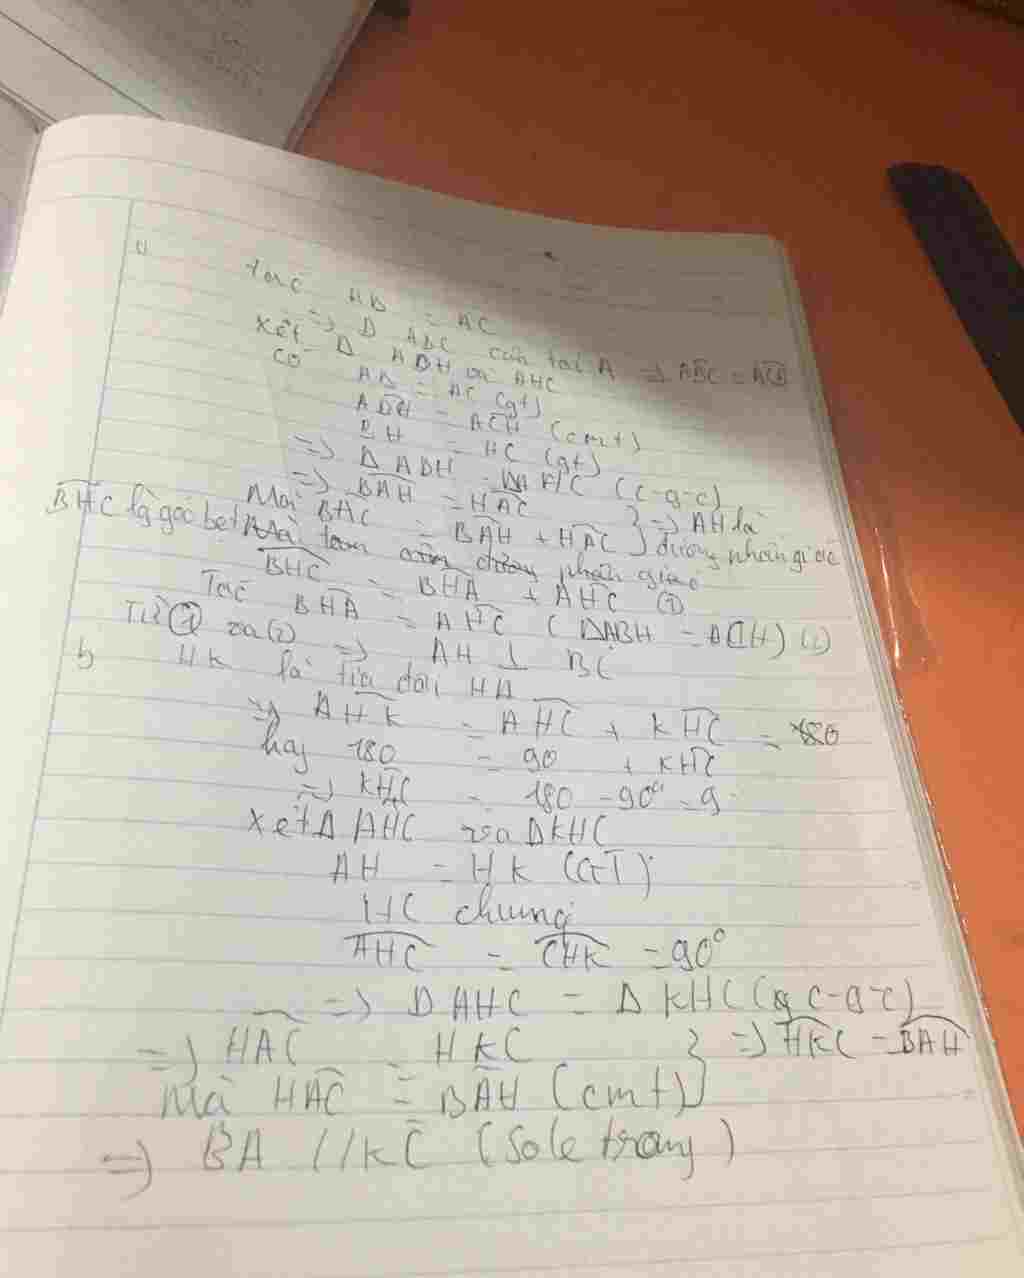 a
Ta có AB = AC
=> Δ ABC cân tại A => ABC = ACB
Xét Δ ABH và AHC
có AB = AC (gt)
ABH = ACH (cmt)
BH = HC (gt)
=> Δ ABH = AHC (c-g-c)
=> BAH = HAC
Mà BAC = BAH + HAC } => AH là đường phân giác
BHC là góc bẹt
BHC = BHA + AHC (1)
Ta có BHA = AHC (ΔABH = ACH) (2)
Từ (1) và (2) => AH ⊥ BC
b HK là tia đối HA
=> AHK = AHC + KHC = 180
hay 180 = 90 + KHC
=> KHC = 180 - 90° = 9
Xét Δ AHC và ΔKHC
AH = HK (GT)
HC chung
AHC = CHK = 90°
=> Δ AHC = Δ KHC (c-g-c)
=> HAC = HKC } => HKC = BAH
Mà HAC = BAH (cmt)
=> BA // KC (So le trong)